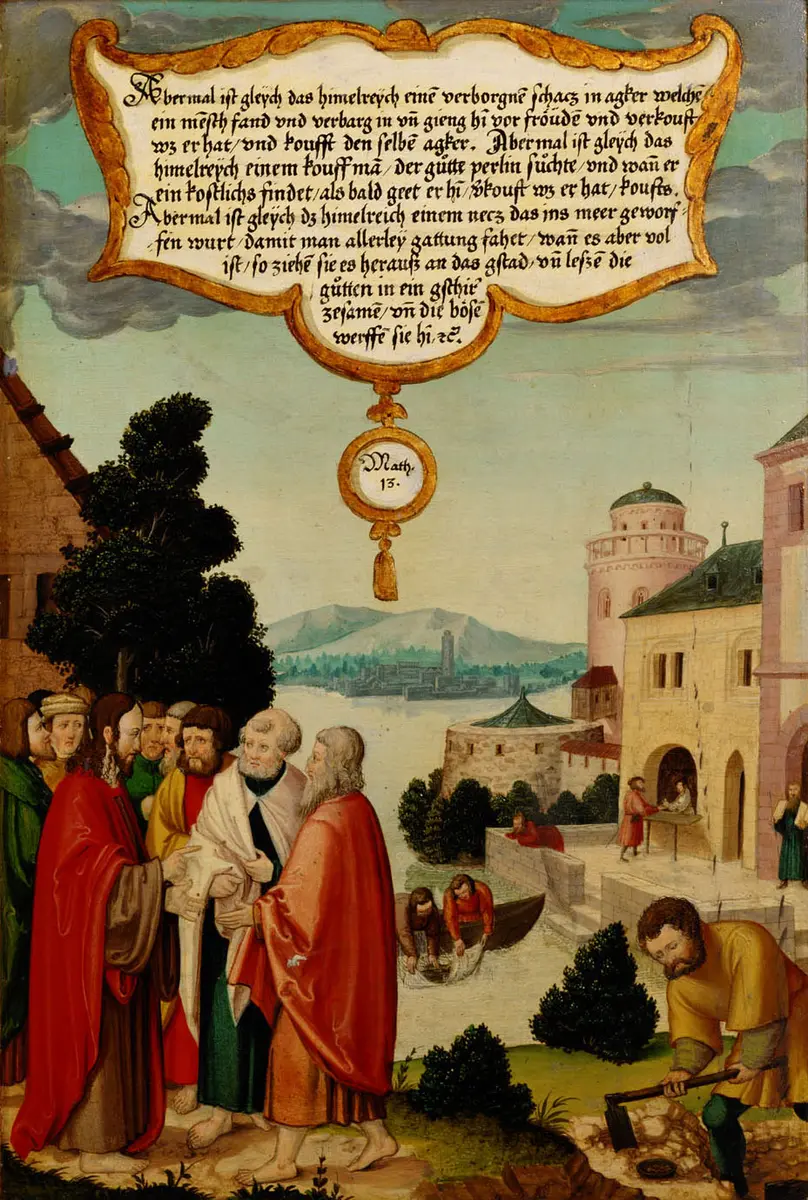 Abermal ist gleÿch das himelreÿch einẽ verborgnẽ schacz in agker welchẽ
ein mẽsch fand vnd verbarg in vñ gieng hĩ vor frôuden vnd verkouft
wz er hat/vnd koufft den selben agker. Abermal ist gleÿch das
himelreÿch einem kouffmã/der gůtte perlin sůchte/vnd wañ er
ein kostlichs findet/als bald geet er hĩ/v̄kouft wz er hat/koufts.
Abermal ist gleÿch dz himelreich einem necz das ins meer geworf-
-fen wurt/damit man allerleÿ gattung fahet/wañ es aber vol
ist/so ziehẽ sie es herauß an das gstad/vñ leßẽ die
gůtten in ein gschir
zesamẽ/vñ die bôsẽ
werffẽ sie hĩ/ꝛc̃.
Math.
13.